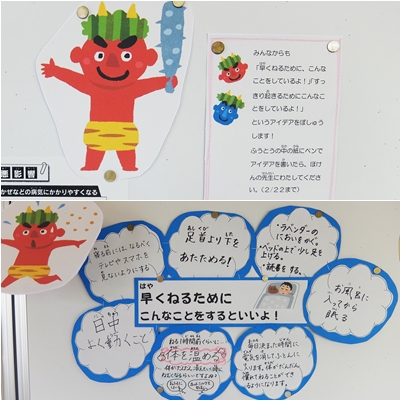 みんなからも
「早くねるために、こんな
ことをしているよ！」「すっ
きり起きるためにこんなこ
とをしているよ！」
というアイデアをぼしゅう
します！
ふうとうの中の紙にペンで
アイデアを書いたら、ほけ
んの先生にわたしてくださ
い。(2/22まで)
影響
かぜなどの病気にかかりやすくなる
寝る前には、なるべく
テレビやスマホを
見ないようにする
足首より下を
あたためる！
・ラベンダーの
においをかぐ。
・ベッドの上で少し足を
上げる。
・読書をする。
早くねるために
こんなことをするといいよ！
お風呂に
入ってから
眠る
日中
よく動くこと
ねる1時間前ぐらいに
体を温める
毎日決まった時間に
電気を消して、ふとんに
入ります。体がだんだん
慣れてねることができ
るようになります。